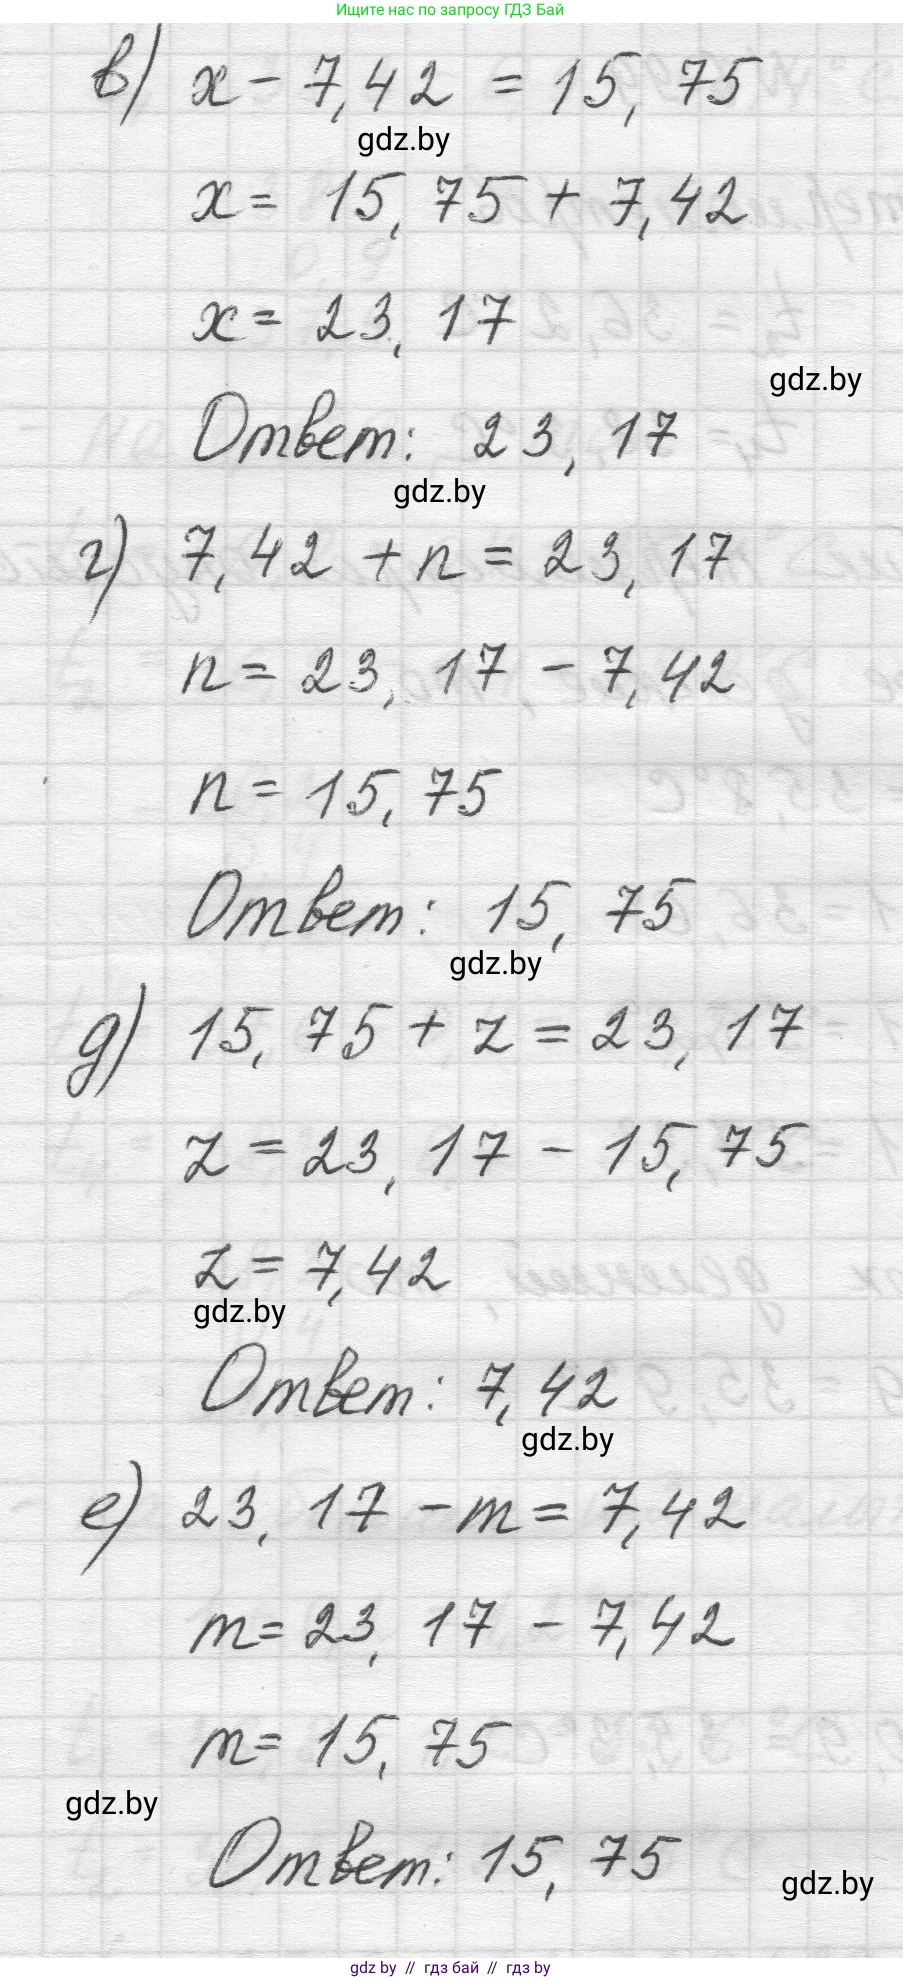 Ищите нас по запросу ГДЗ Бай
в) x - 7,42 = 15,75
gdz.by
x = 15,75 + 7,42
x = 23,17
gdz.by
Ответ: 23,17
gdz.by
г) 7,42 + n = 23,17
n = 23,17 - 7,42
n = 15,75
Ответ: 15,75
gdz.by
д) 15,75 + z = 23,17
z = 23,17 - 15,75
z = 7,42
gdz.by
Ответ: 7,42
gdz.by
е) 23,17 - m = 7,42
m = 23,17 - 7,42
m = 15,75
gdz.by
Ответ: 15,75
gdz.by
gdz by // гдз бай // гдз by